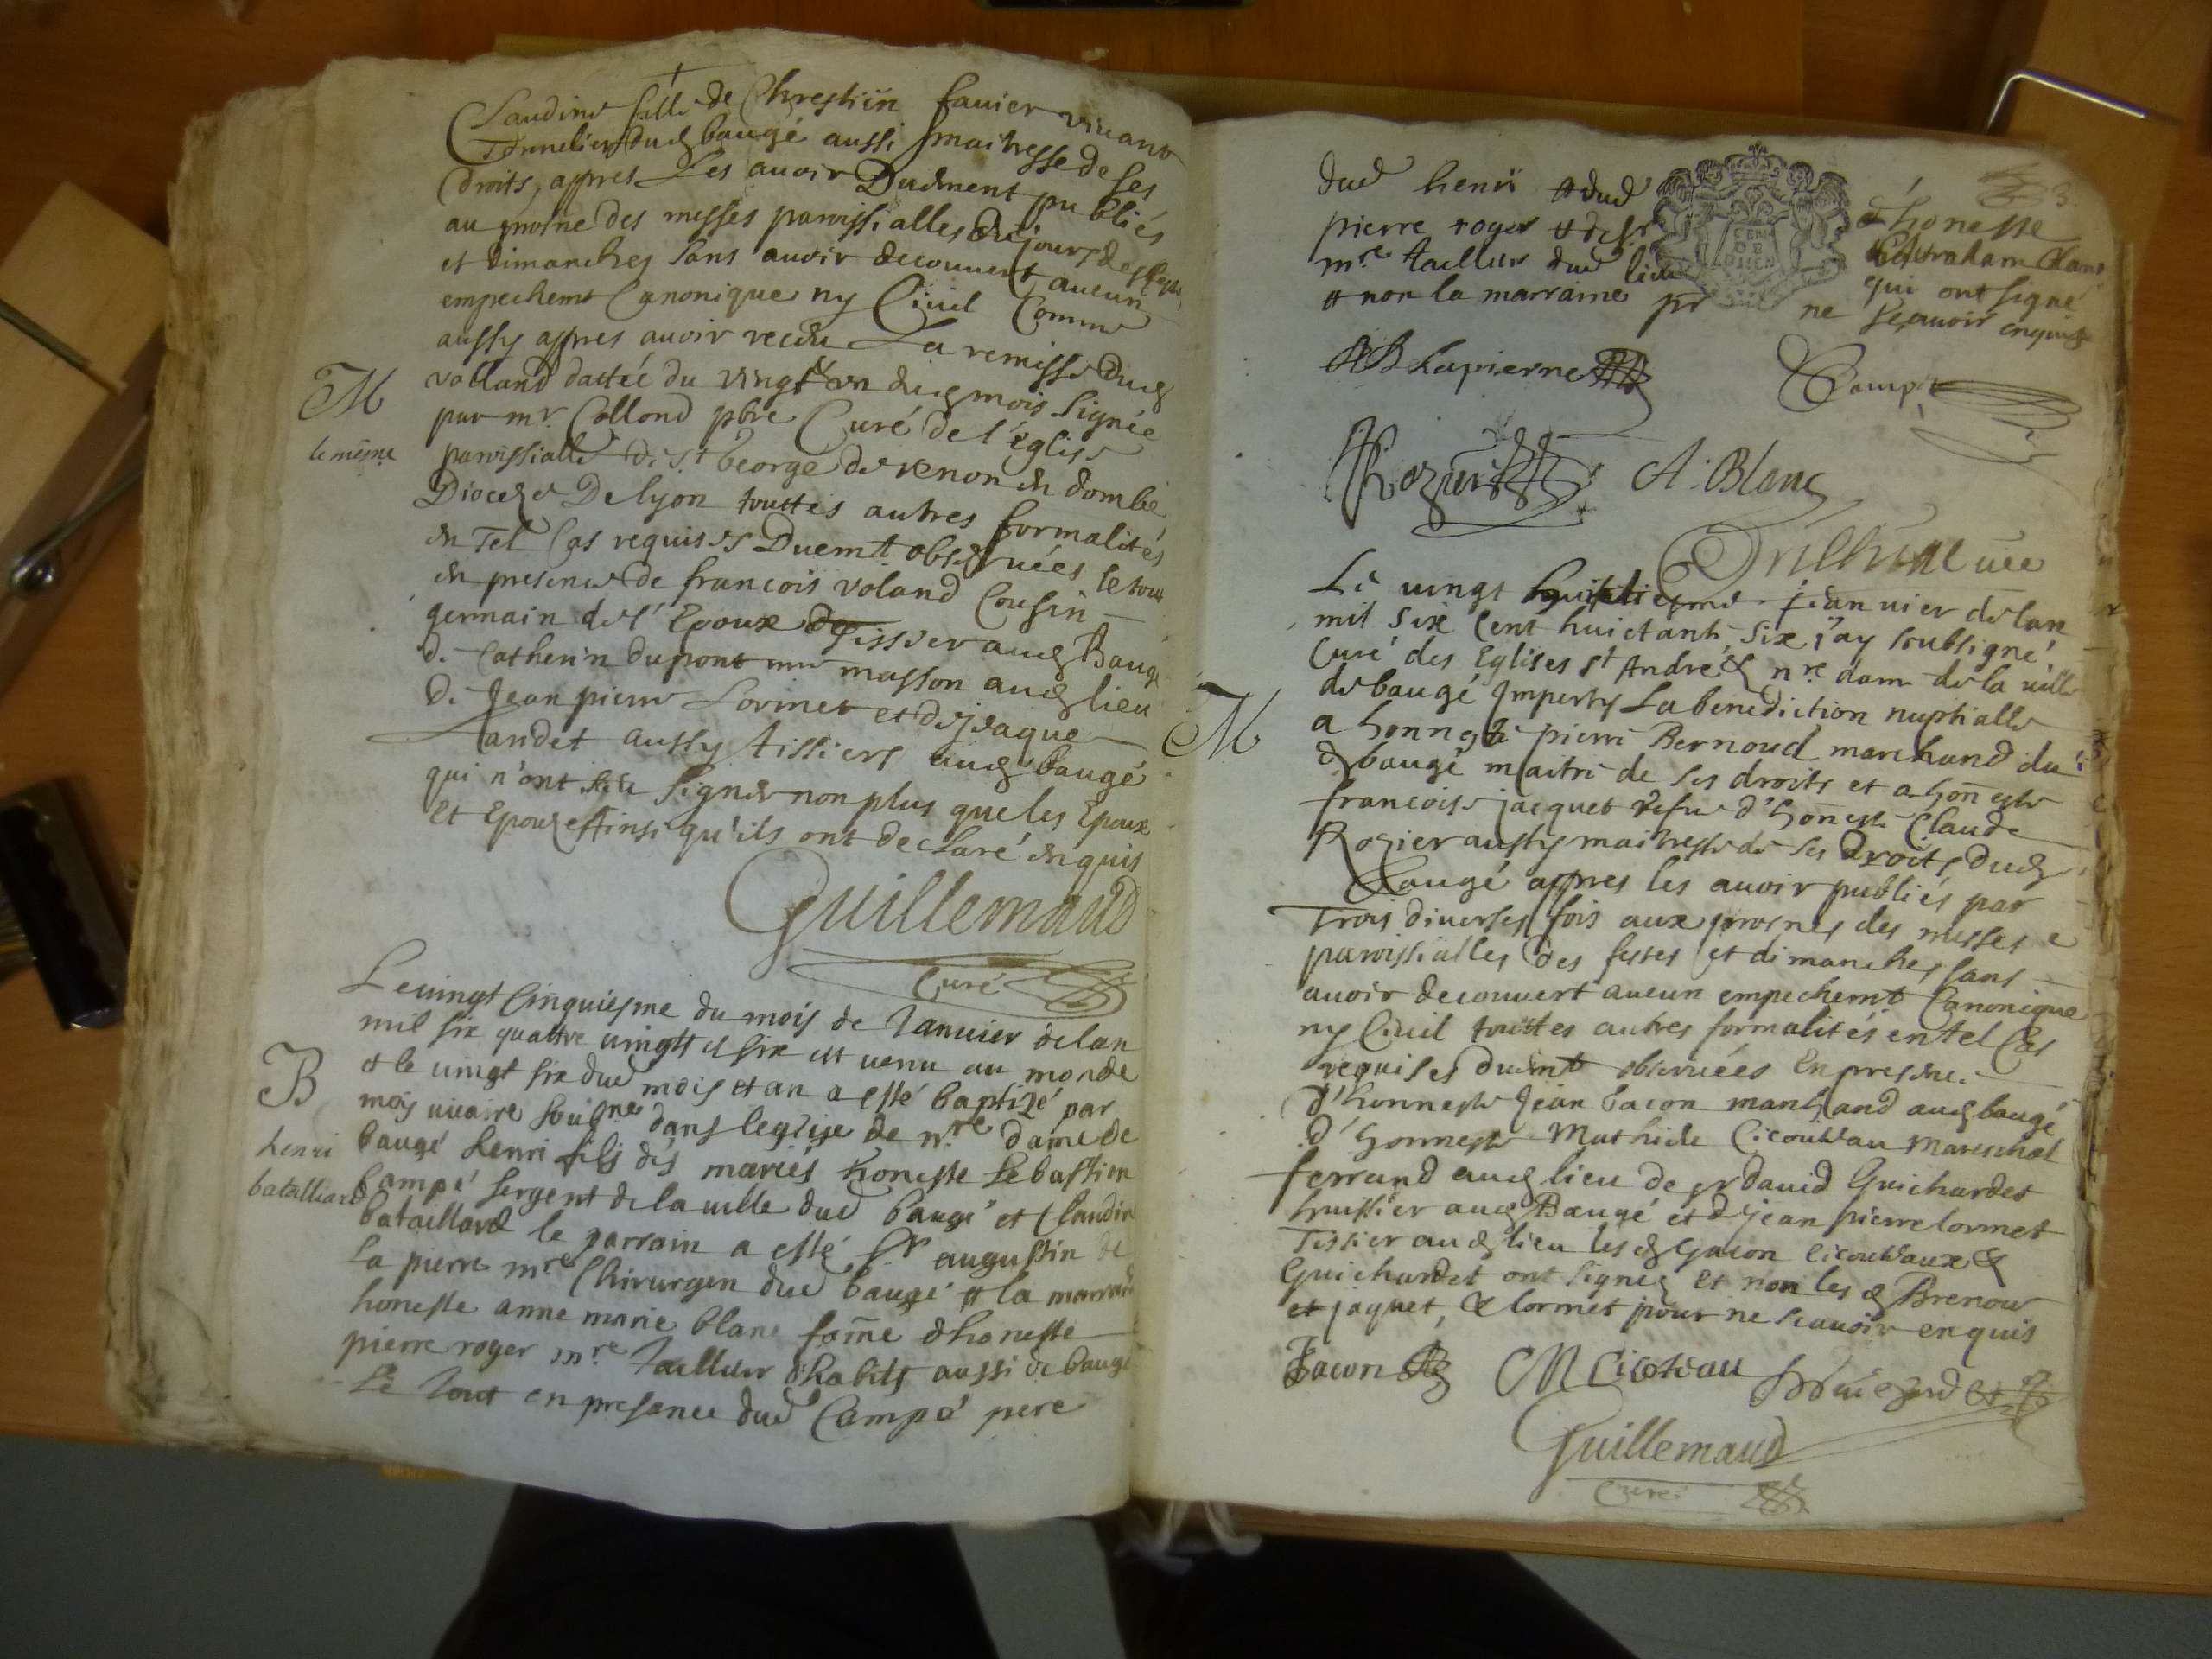 Claudine fille de Chrestiin favier vivant
Tonnelier dud baugé aussi maitresse de ses
droits, appres Les avoir Duëment publiés
au prosne des messes paroissialles des jours de festes
et dimanches sans avoir decouvert aucun
empechemt Canonique ny Civil Comme
aussy appres avoir receu La remisse dud
volland dattée du vingt un dud mois signée
M
le mesme
par mr. Collond pbre Curé de l'église
paroissialle de St George de renon en dombe
Diocese De lyon touttes autres formalités
en Tel Cas requises Duemt observées le tout
en presence de francois voland Cousin
germain de l'Epoux tissier aud Baugé
de Catherin dupont masson aud lieu
de Jean pierre Lormet et de jsaque
Landet aussy tissiers aud baugé
qui n'ont sceu signer non plus que les Epoux
Et Epouze Ainsi qu'ils ont declaré enquis
Guillemaud
Curé
Le vingt Cinquiesme du mois de Janvier de lan
mil six quattre vingtt et six est venu au monde
et le vingt six dud mois et an a esté baptizé par
B
henri
batalliard
moy vicaire soubsne dans leglise de nre dame de
baugé henri fils des mariés honeste sebastien
Campé sergent de la ville dud baugé et Claudine
bataillard le parrain a esté Sr augustin de
la pierre mre Chirurgien dud baugé et la marraine
honeste anne marie blanc fame dhoneste
pierre roger mre Tailleur dhabits aussi de baugé
Le Tout en presance dud Campé pere
3
dud henri et dud
pierre roger et de
mre tailleur dud lieu
et non la marraine pr
dhoneste
Abraham blanc
qui ont signé
ne scavoir enquise
GEN
DE
DIJON
Lapierre
Campé
Rogier
A. Blanc
M
Le vingt huitiesme janvier de lan
mil six Cent huictante six j'ay soubsigné
Curé des Eglises St André & nre dame de la ville
de baugé Imperty La benediction nuptialle
a honneste pierre Bernoud marchand du
d baugé maitre de ses droits et a honeste
francoise jacquet vefve d'honeste Claude
Rogier aussy maitresse de ses droits dud
Baugé appres les avoir publiés par
Trois diverses fois aux prosnes des messes
paroissialles des festes et dimanches sans
avoir decouvert aucun empechemt Canonique
ny Civil touttes autres formalités en tel Cas
requises duemt observées En presence
d'honneste Jean Jacon marchand aud baugé
d'honneste Mathide Cicouteau Mareschal
ferrand aud lieu de sr david Guichardet
huissier aud Baugé et de jean pierre lormet
Tissier aud lieu les d Jacon Cicouteaux &
Guichardet ont signez et non les d Brenou
et jaquet, & lormet pour ne scavoir enquis
Jacon
CM Cicoteau
Guichardet
Guillemaud
Curé